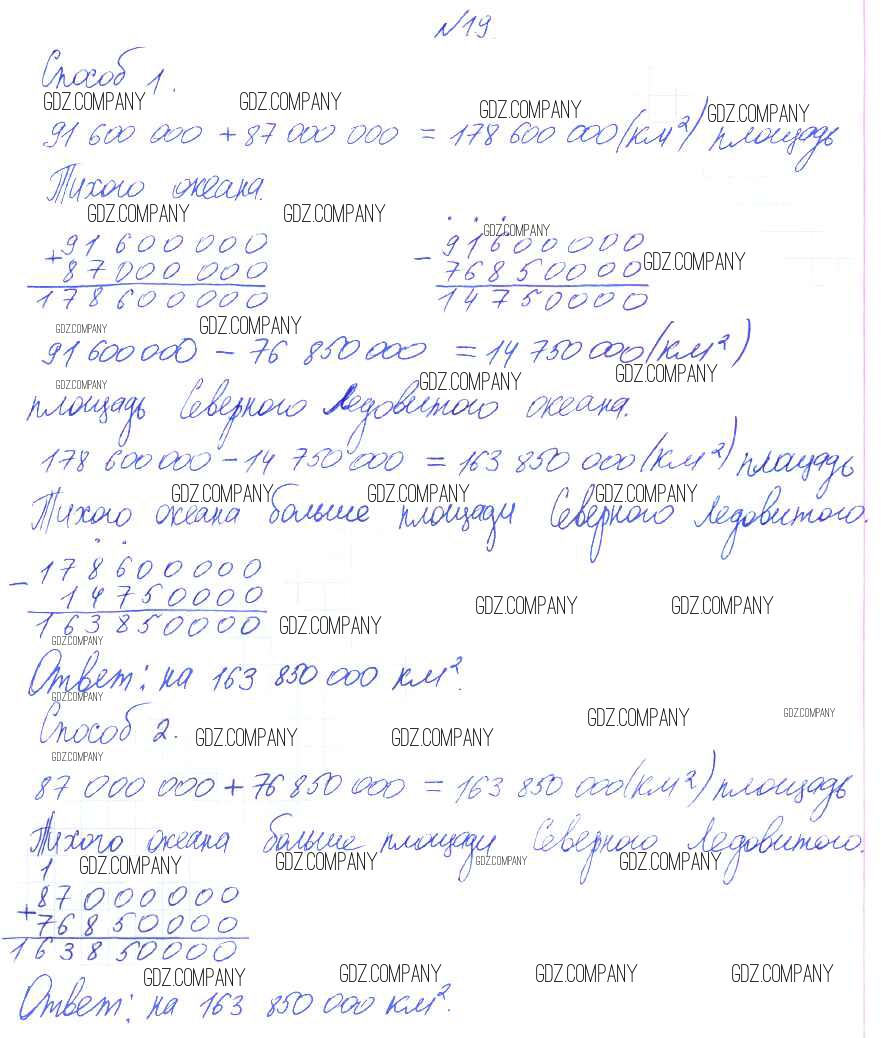 №19
Способ 1.
GDZ.COMPANY GDZ.COMPANY GDZ.COMPANY GDZ.COMPANY
91 600 000 + 87 000 000 = 178 600 000 (км²) площадь
Тихого океана.
GDZ.COMPANY GDZ.COMPANY GDZ.COMPANY
+91600000 -91600000
87000000 76850000 GDZ.COMPANY
178600000 14750000
GDZ.COMPANY GDZ.COMPANY
91 600 000 - 76 850 000 = 14 750 000 (км²)
GDZ.COMPANY GDZ.COMPANY GDZ.COMPANY
площадь Северного Ледовитого океана.
178 600 000 - 14 750 000 = 163 850 000 (км²) площадь
GDZ.COMPANY GDZ.COMPANY GDZ.COMPANY
Тихого океана больше площади Северного Ледовитого.
-178600000
14750000
GDZ.COMPANY GDZ.COMPANY
163850000 GDZ.COMPANY
GDZ.COMPANY
Ответ: на 163 850 000 км².
GDZ.COMPANY
Способ 2.
GDZ.COMPANY GDZ.COMPANY GDZ.COMPANY GDZ.COMPANY
GDZ.COMPANY
87 000 000 + 76 850 000 = 163 850 000 (км²) площадь
Тихого океана больше площади Северного Ледовитого.
1 GDZ.COMPANY GDZ.COMPANY GDZ.COMPANY GDZ.COMPANY
+87000000
76850000
163850000
GDZ.COMPANY GDZ.COMPANY GDZ.COMPANY GDZ.COMPANY
Ответ: на 163 850 000 км².